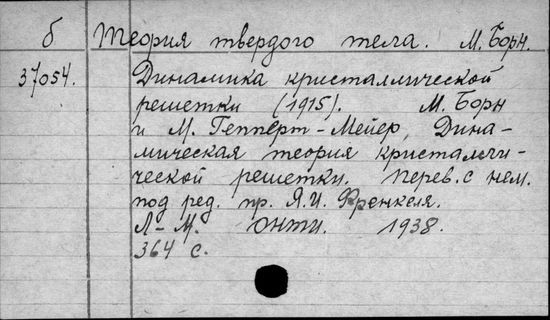 б Теория твердого тела. М. Борн.
37054. Динамика кристаллической
решетки (1915). М. Борн
и М. Гепперт-Мейер, Дина-
мическая теория кристалли-
ческой решетки. перев. с нем.
под ред. пр. Я.И. Френкеля.
Л-М. ОНТИ. 1938.
364 с.